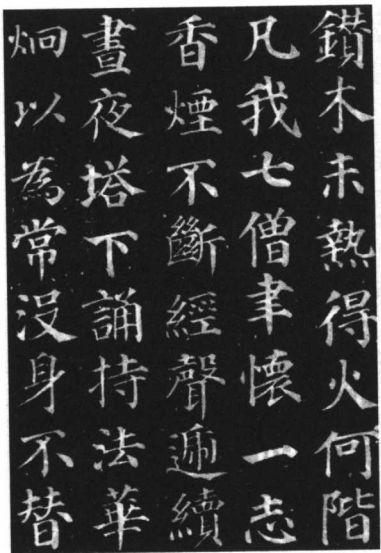 鑚木未熱得火何階
凡我七僧聿懷一志
香煙不斷經聲遞續
晝夜塔下誦持法華
烱以為常没身不替